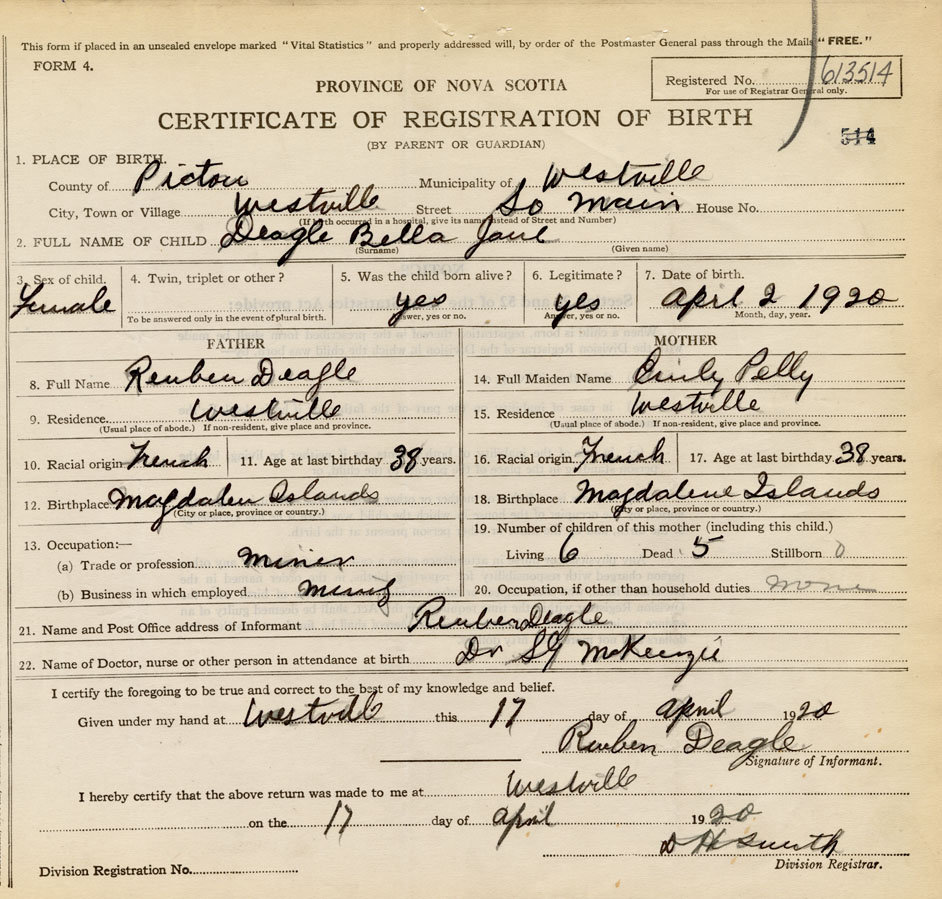 This form if placed in an unsealed envelope marked "Vital Statistics" and properly addressed will, by order of the Postmaster General pass through the Mails "FREE."
FORM 4.
Registered No. 613514
For use of Registrar General only.
PROVINCE OF NOVA SCOTIA
CERTIFICATE OF REGISTRATION OF BIRTH
(BY PARENT OR GUARDIAN)
514
1. PLACE OF BIRTH.
County of Pictou Municipality of Westville
City, Town or Village Westville Street So Main House No.
(If birth occurred in a hospital, give its name instead of Street and Number)
2. FULL NAME OF CHILD Deagle Bella Jane
(Surname) (Given name)
3. Sex of child. 4. Twin, triplet or other? 5. Was the child born alive? 6. Legitimate? 7. Date of birth.
Female yes yes Aprl 2 1920
To be answered only in the event of plural birth. Answer, yes or no. Answer, yes or no. Month, day, year.
FATHER
8. Full Name Reuben Deagle
9. Residence. Westville
(Usual place of abode.) If non-resident, give place and province.
10. Racial origin French 11. Age at last birthday 38 years.
12. Birthplace Magdalen Islands
(City or place, province or country.)
13. Occupation:—
(a) Trade or profession Miner
(b) Business in which employed Mining
MOTHER
14. Full Maiden Name Emily Pelly
15. Residence Westville
(Usual place of abode.) If non-resident, give place and province.
16. Racial origin. French 17. Age at last birthday. 38 years.
18. Birthplace Magdalene Islands
(City or place, province or country.)
19. Number of children of this mother (including this child.)
Living 6 Dead 5 Stillborn 0
20. Occupation, if other than household duties None
21. Name and Post Office address of Informant Reuben Deagle
22. Name of Doctor, nurse or other person in attendance at birth Dr SG McKenzie
I certify the foregoing to be true and correct to the best of my knowledge and belief.
Given under my hand at Westville this 17 day of April 1920
Reuben Deagle
Signature of Informant.
I hereby certify that the above return was made to me at Westville
on the 17 day of April 1920
D H Smith
Division Registrar.
Division Registration No.